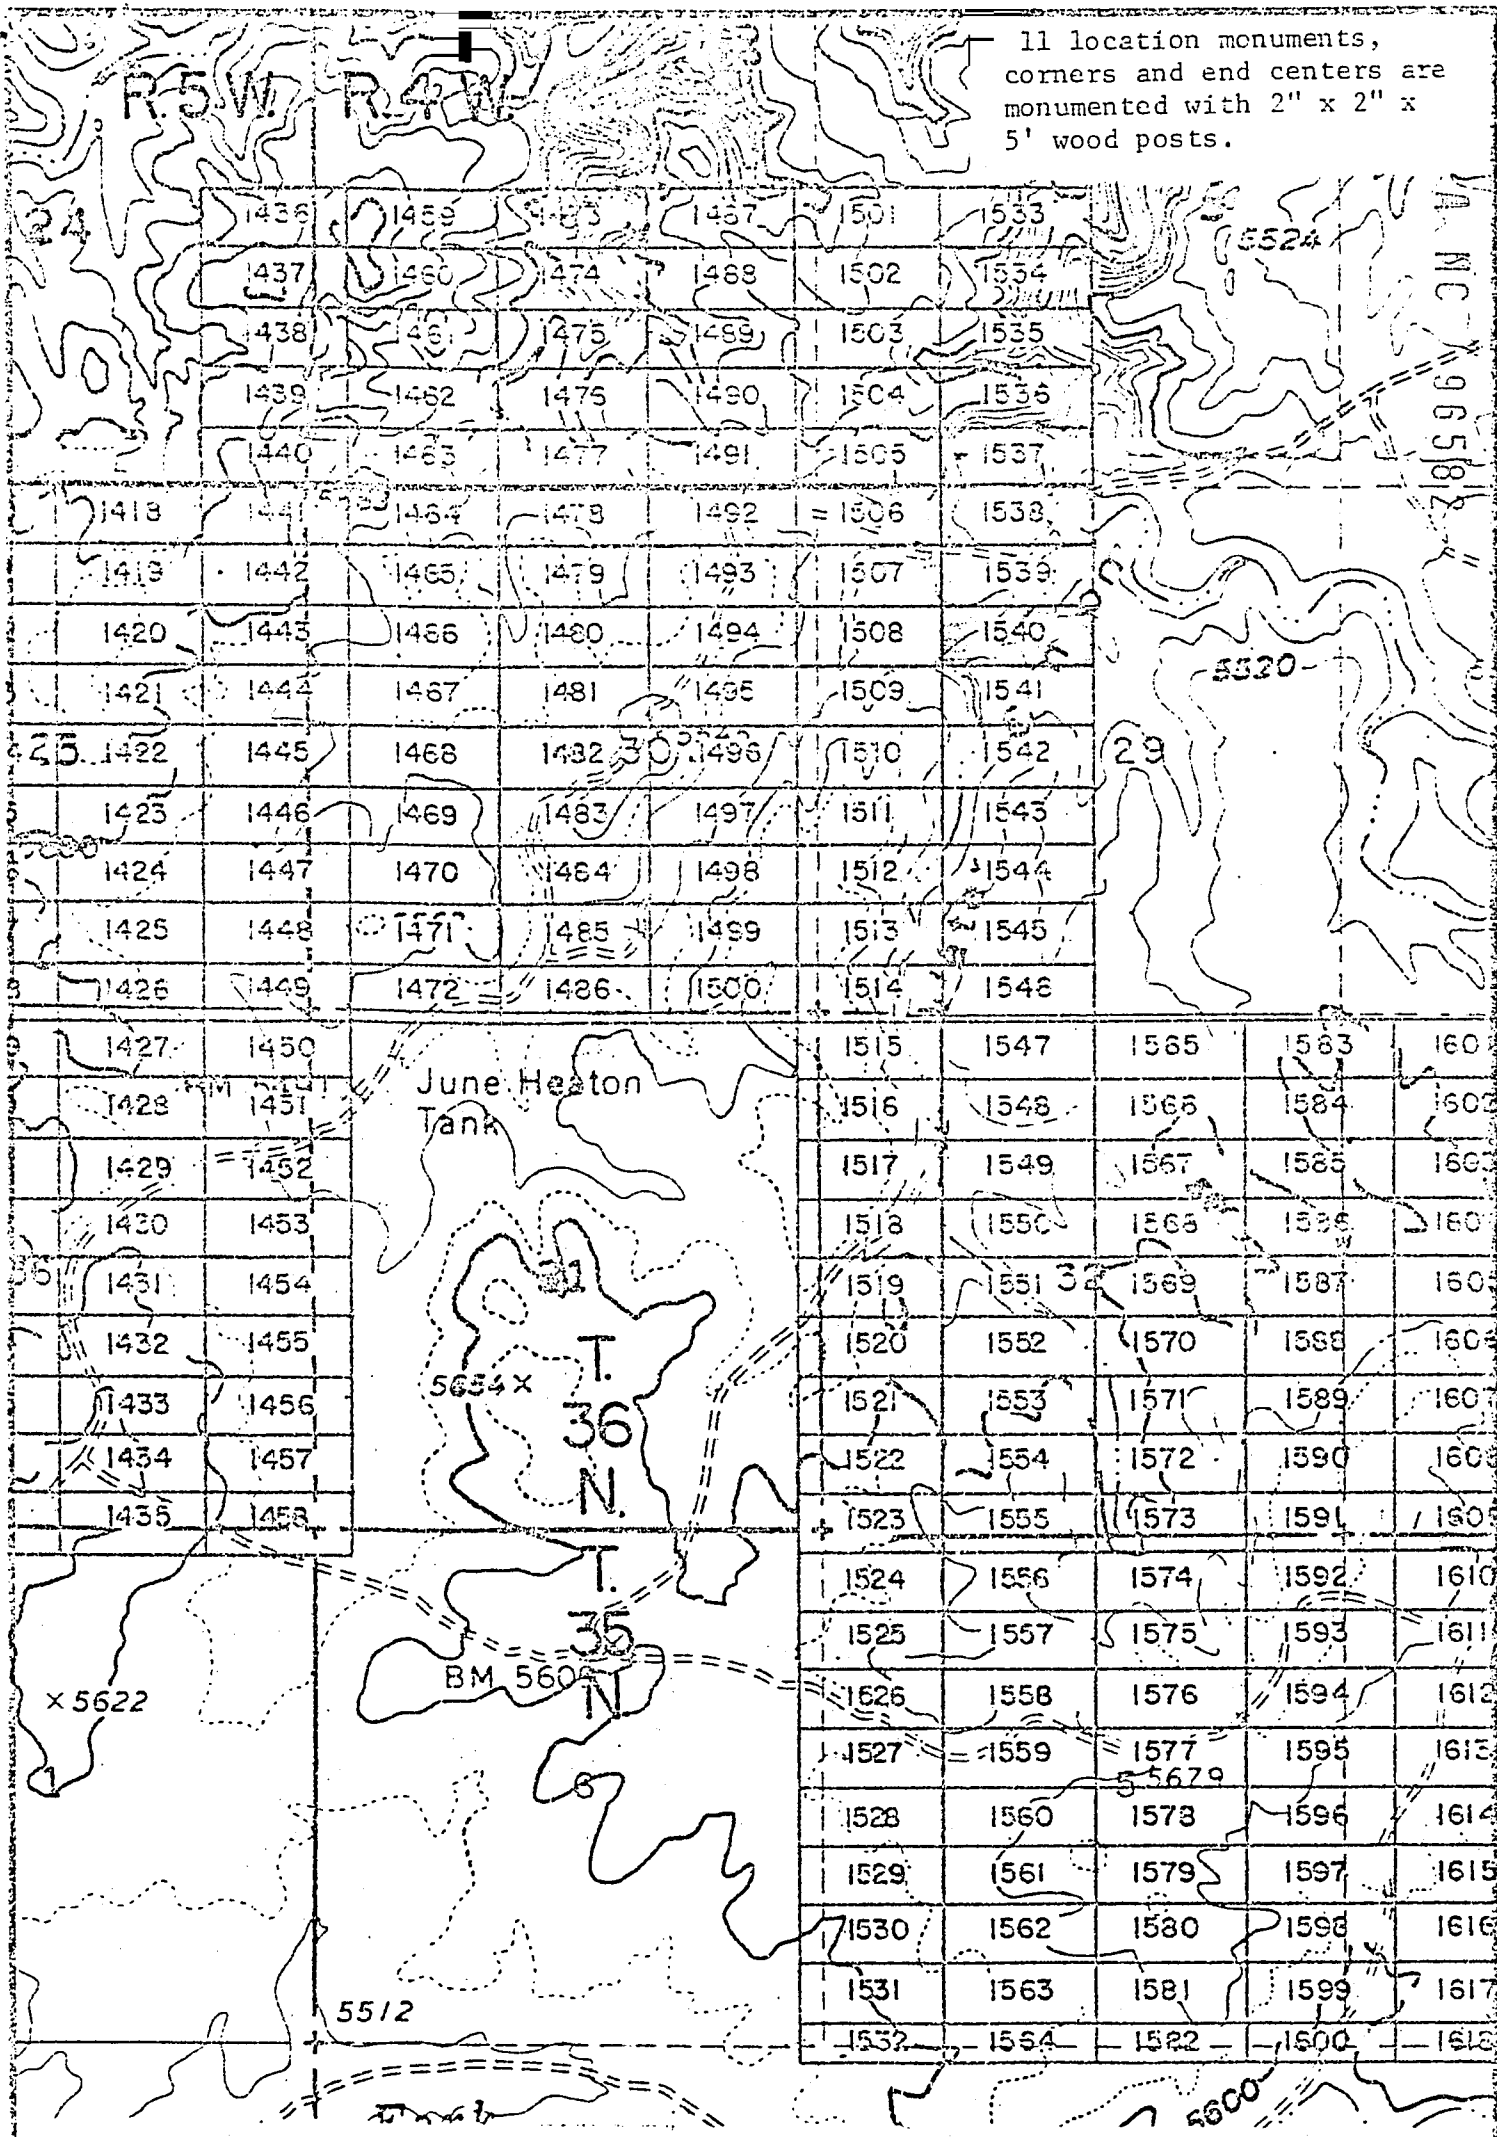 11 location monuments,
corners and end centers are
monumented with 2" x 2" x
5' wood posts.
R.5W. R.4W.
24
5524
1436 1459 1487 1501 1533
1437 1460 1474 1488 1502 1534
1438 1461 1475 1489 1503 1535
1439 1462 1476 1490 1504 1536
1440 1463 1477 1491 1505 1537
1418 1441 1464 1478 1492 1506 1538
1419 1442 1465 1479 1493 1507 1539
1420 1443 1466 1480 1494 1508 1540
1421 1444 1467 1481 1495 1509 1541
5320
25 1422 1445 1468 1482 30 1496 1510 1542 29
1423 1446 1469 1483 1497 1511 1543
1424 1447 1470 1484 1498 1512 1544
1425 1448 1471 1485 1499 1513 1545
1426 1449 1472 1486 1500 1514 1546
1427 1450 1515 1547 1565 1583 160
June Heaton
Tank
1428 1451 1516 1548 1566 1584 1602
1429 1452 1517 1549 1567 1585 1603
1430 1453 1518 1550 1568 1586 160
36 1431 1454 31 1519 1551 32 1569 1587 1605
1432 1455 1520 1552 1570 1588 1606
T.
36
N.
5654 ×
1433 1456 1521 1553 1571 1589 1607
1434 1457 1522 1554 1572 1590 1608
1435 1458 1523 1555 1573 1591 1609
T.
35
N.
1524 1556 1574 1592 1610
1525 1557 1575 1593 1611
BM 560
× 5622
1526 1558 1576 1594 1612
1527 1559 1577 1595 1613
1 6 5 5679
1528 1560 1578 1596 1614
1529 1561 1579 1597 1615
1530 1562 1580 1598 1616
1531 1563 1581 1599 1617
5512
1532 1564 1582 1600 1618
5600